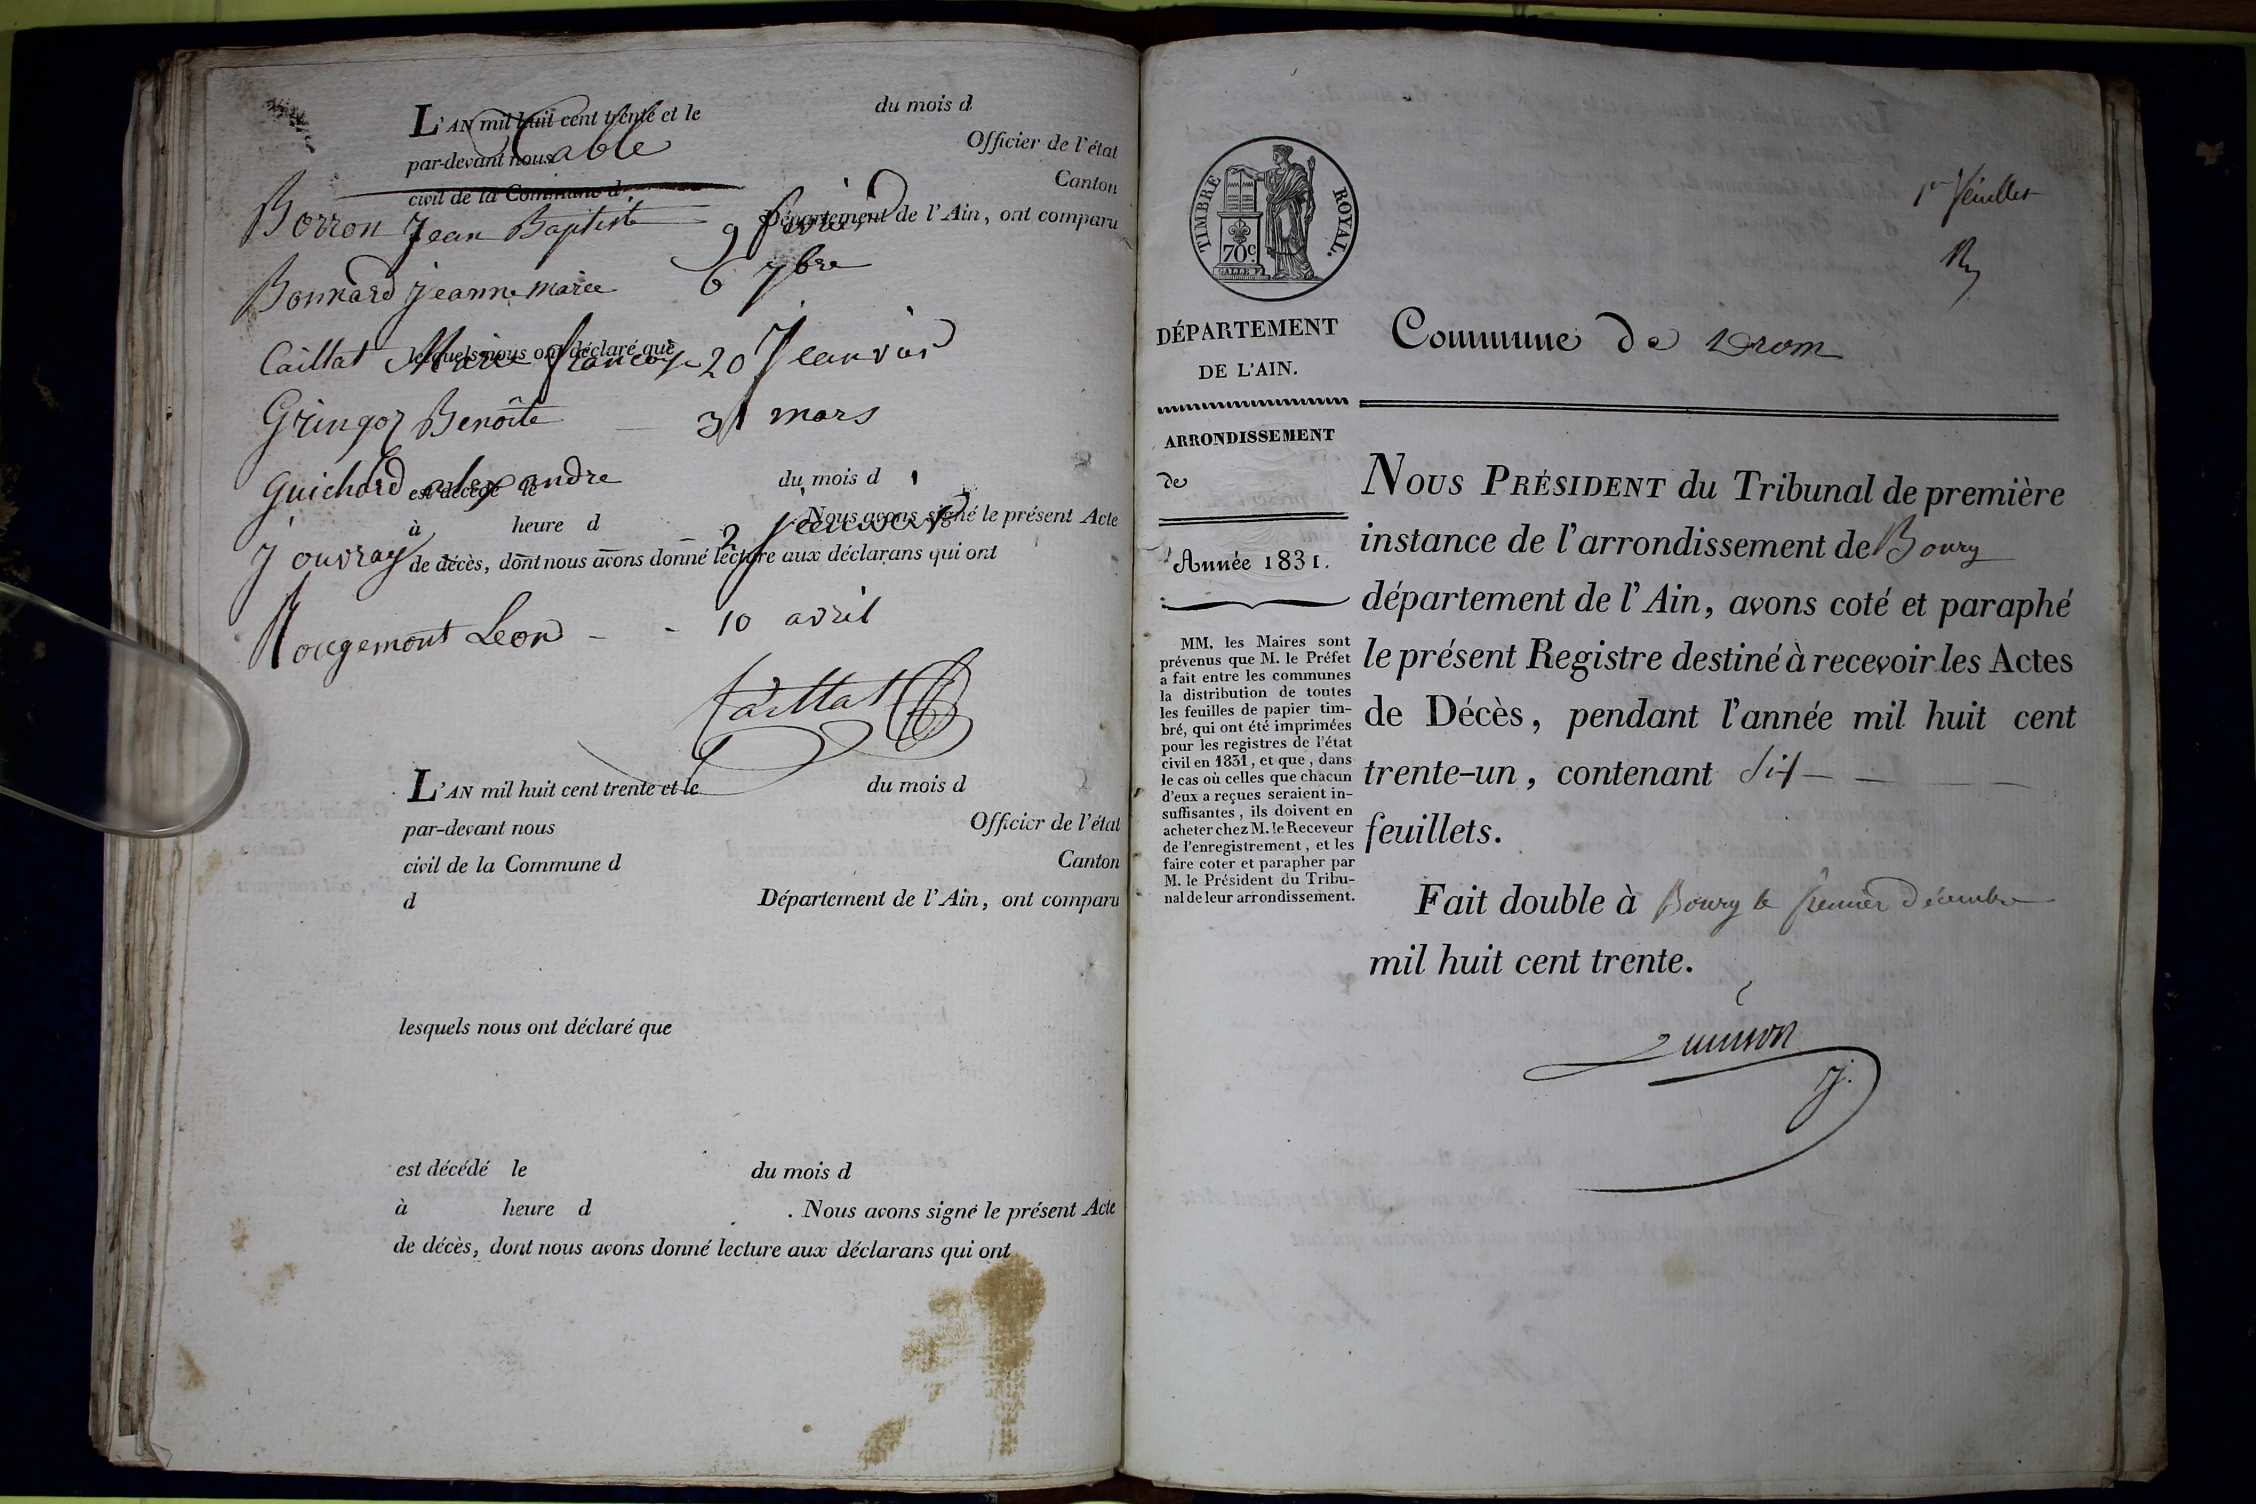 L'AN mil huit cent trente et le du mois d
Table
par-devant nous Officier de l'état
civil de la Commune d Canton
Département de l'Ain, ont comparu
Borron Jean Baptiste 9 février
Bonnard jeanne marie 6 7bre
lesquels nous ont déclaré que
Caillat Marie françoise 20 Janvier
Gringoz Benoîte 31 mars
Guichard alexandre
est décédé le du mois d
à heure d Nous avons signé le présent Acte
J ouvray 2 Janvier
de décès, dont nous avons donné lecture aux déclarans qui ont
Rougemont Leon - - 10 avril
Caillat
L'AN mil huit cent trente et le du mois d
par-devant nous Officier de l'état
civil de la Commune d Canton
d Département de l'Ain, ont comparu
lesquels nous ont déclaré que
est décédé le du mois d
à heure d . Nous avons signé le présent Acte
de décès, dont nous avons donné lecture aux déclarans qui ont
TIMBRE ROYAL.
70c.
1er feuillet
DÉPARTEMENT
DE L'AIN.
ARRONDISSEMENT
de
Année 1831.
MM. les Maires sont
prévenus que M. le Préfet
a fait entre les communes
la distribution de toutes
les feuilles de papier tim-
bré, qui ont été imprimées
pour les registres de l'état
civil en 1831, et que, dans
le cas où celles que chacun
d'eux a reçues seraient in-
suffisantes, ils doivent en
acheter chez M. le Receveur
de l'enregistrement, et les
faire coter et parapher par
M. le Président du Tribu-
nal de leur arrondissement.
Commune de Drom
NOUS PRÉSIDENT du Tribunal de première
instance de l'arrondissement de Bourg
département de l'Ain, avons coté et paraphé
le présent Registre destiné à recevoir les Actes
de Décès, pendant l'année mil huit cent
trente-un, contenant six
feuillets.
Fait double à Bourg le premier Décembre
mil huit cent trente.